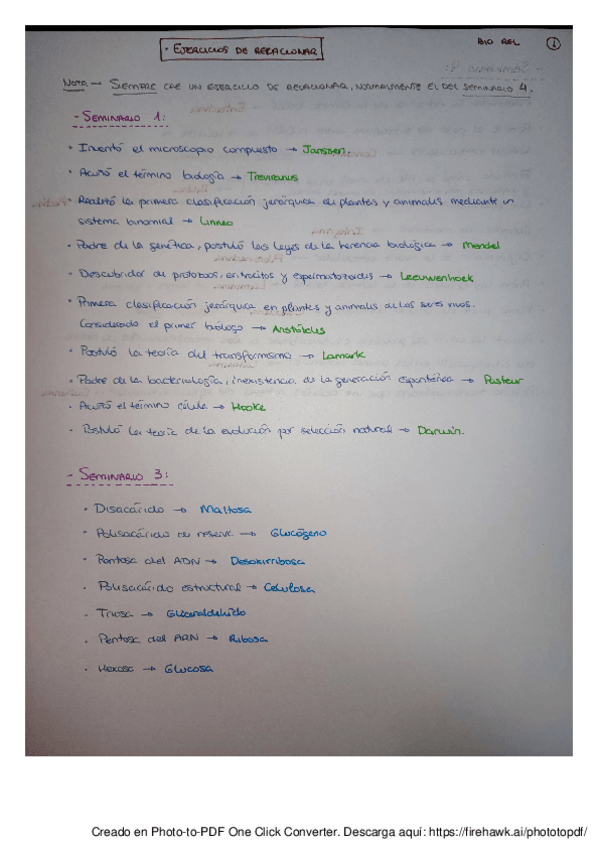 · EJERCICIOS DE RELACIONAR
BIO REL 1
NOTA → SIEMPRE CAE UN EJERCICIO DE RELACIONAR, NORMALMENTE EL DEL SEMINARIO 4.
- SEMINARIO 1:
· Inventó el microscopio compuesto → Janssen.
· Acuñó el término biología → Treviranus
· Realizó la primera clasificación jerárquica de plantas y animales mediante un
sistema binomial → Linneo
· Padre de la genética, postuló las leyes de la herencia biológica → Mendel
· Descubridor de protozoos, eritrocitos y espermatozoides → Leeuwenhoek
· Primera clasificación jerárquica en plantas y animales de los seres vivos.
Considerado el primer biólogo → Aristóteles
· Postuló la teoría del transformismo → Lamark
· Padre de la bacteriología, inexistencia de la generación espontánea → Pasteur
· Acuñó el término célula → Hooke
· Postuló la teoría de la evolución por selección natural → Darwin.
- SEMINARIO 3:
· Disacárido → Maltosa
· Polisacárido de reserva → Glucógeno
· Pentosa del ADN → Desoxirribosa
· Polisacárido estructural → Celulosa
· Triosa → Gliceraldehído
· Pentosa del ARN → Ribosa
· Hexosa → Glucosa
Creado en Photo-to-PDF One Click Converter. Descarga aquí: https://firehawk.ai/phototopdf/